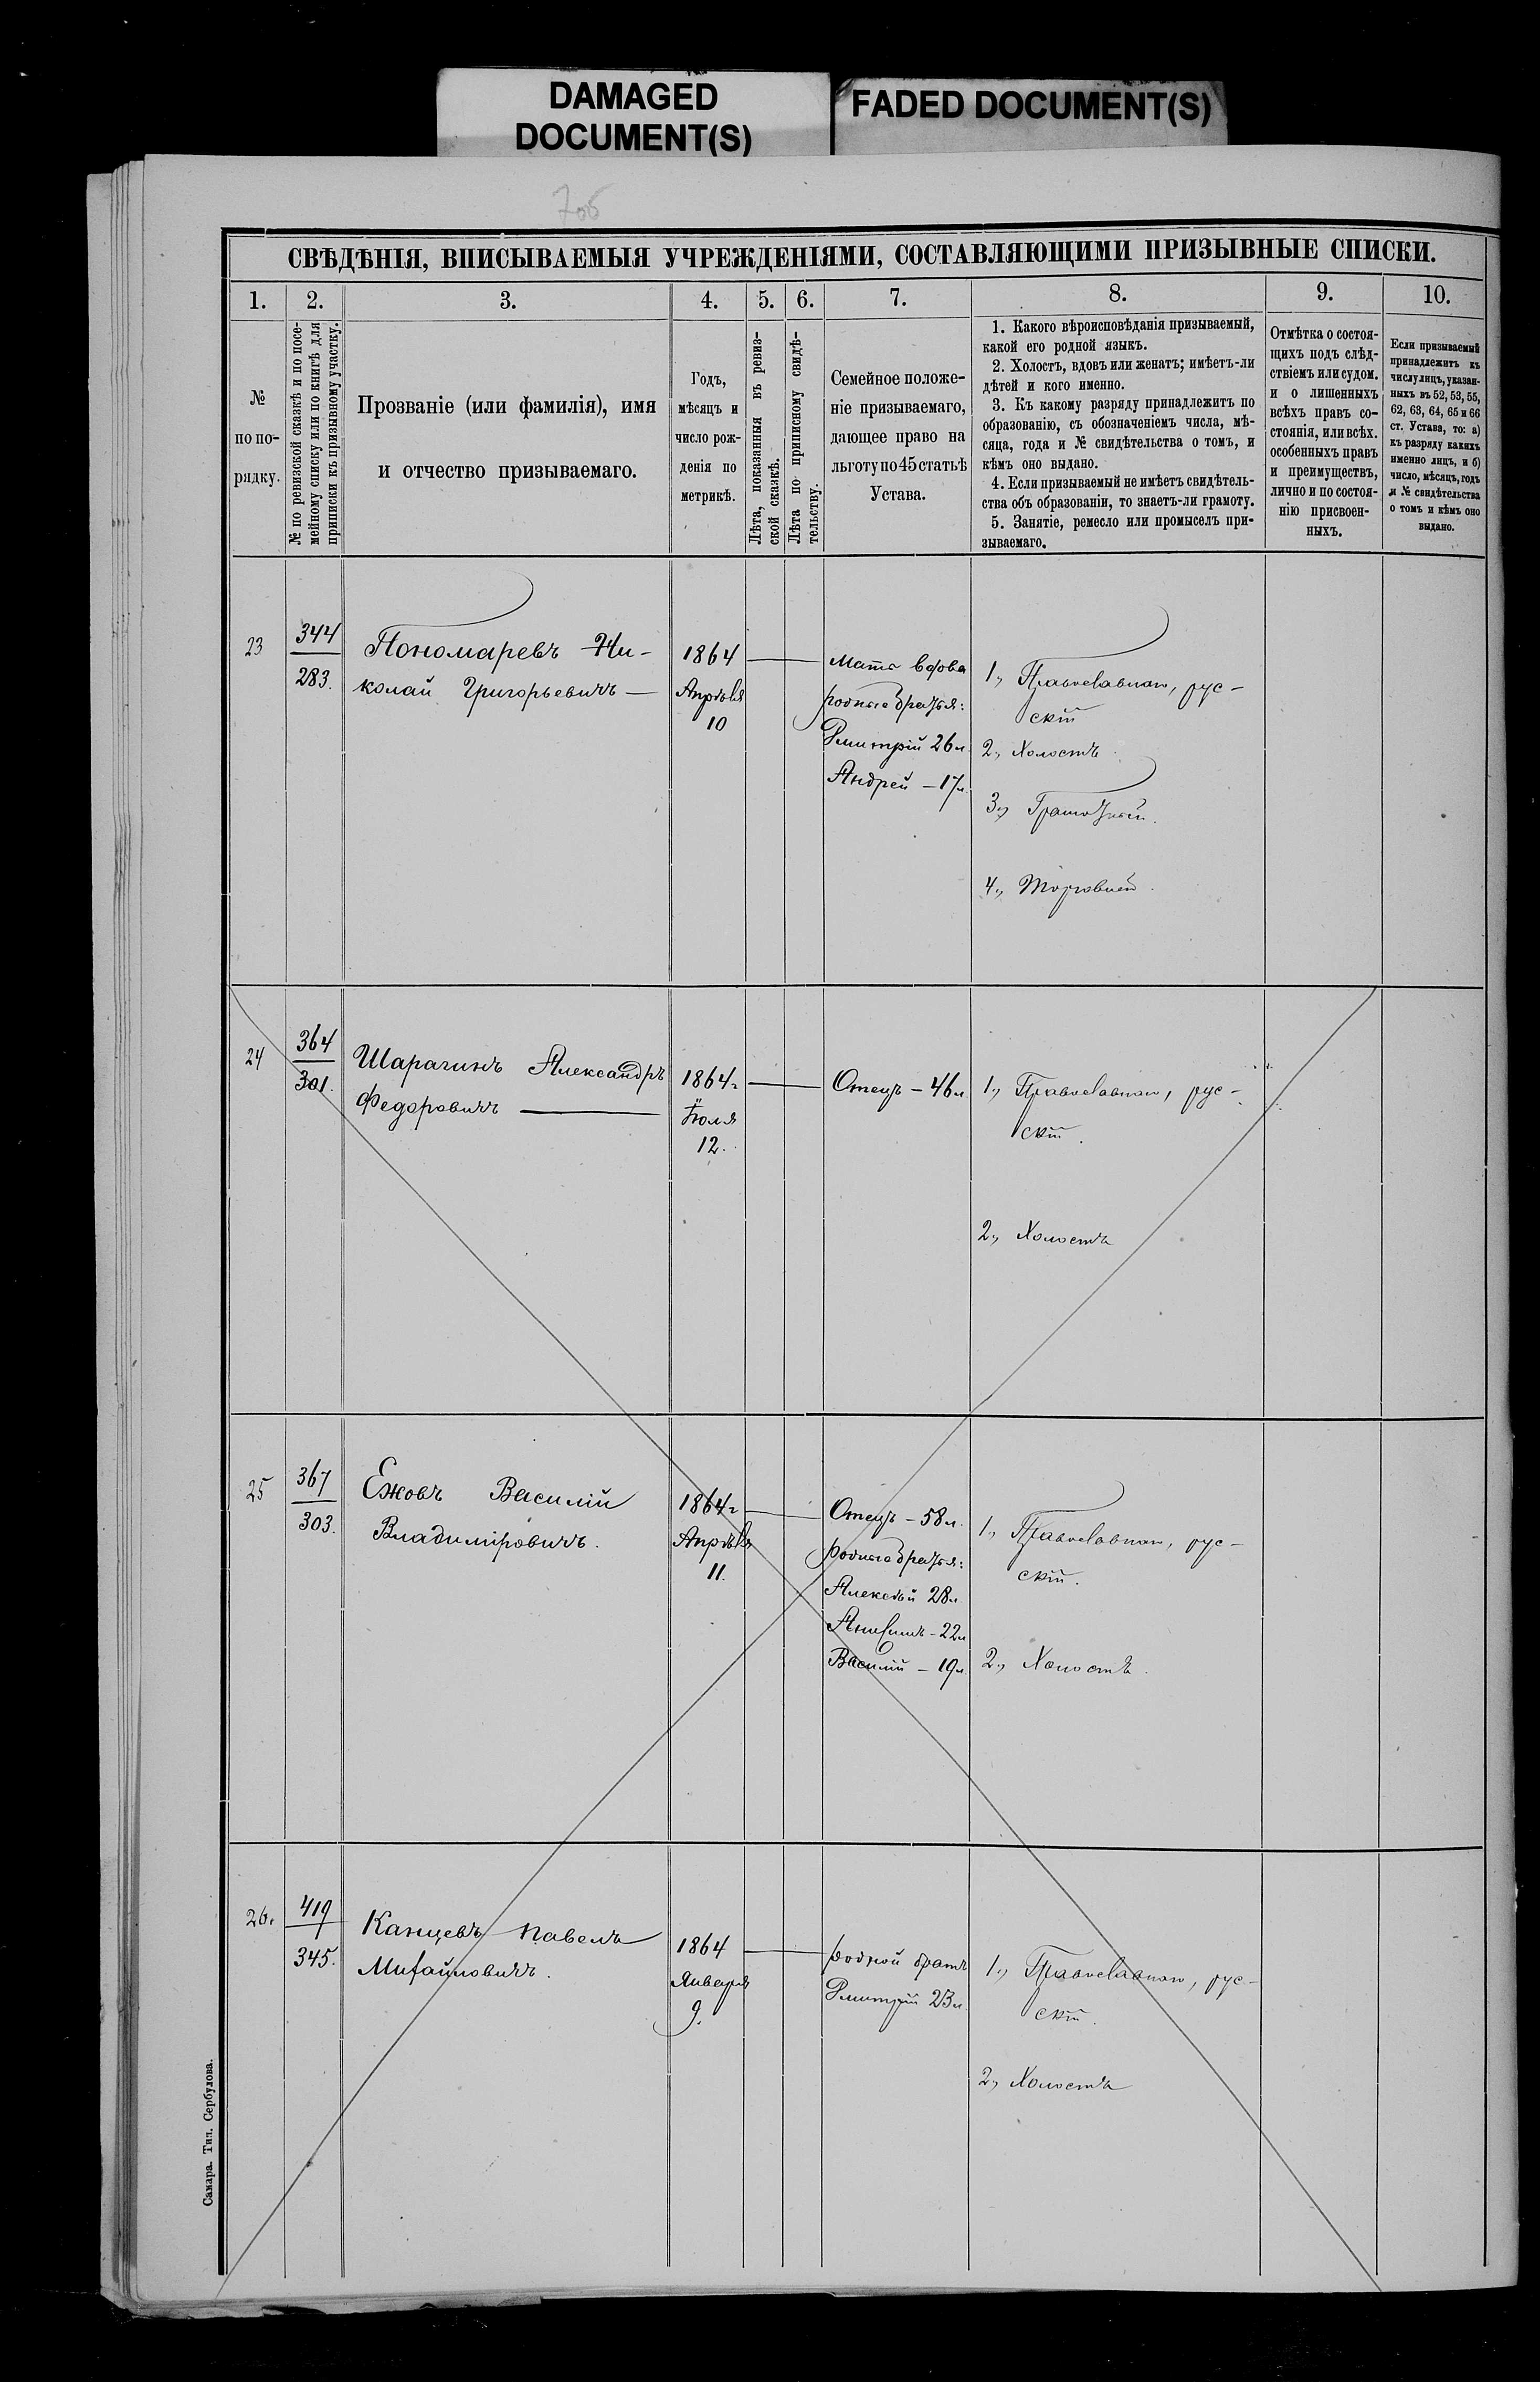 DAMAGED
DOCUMENT(S)
FADED DOCUMENT(S)
706
СВѢДѢНІЯ, ВПИСЫВАЕМЫЯ УЧРЕЖДЕНІЯМИ, СОСТАВЛЯЮЩИМИ ПРИЗЫВНЫЕ СПИСКИ.
1.
2.
3.
4.
5.
6.
7.
8.
9.
10.
№
по по-
рядку.
№ по ревизской сказкѣ и по посе-
мейному списку или по книгѣ для
приписки къ призывному участку.
Прозваніе (или фамилія), имя
и отчество призываемаго.
Годъ,
мѣсяцъ и
число рож-
денія по
метрикѣ.
Лѣта, показанныя въ ревиз-
ской сказкѣ.
Лѣта по приписному свидѣ-
тельству.
Семейное положе-
ніе призываемаго,
дающее право на
льготу по 45 статьѣ
Устава.
1. Какого вѣроисповѣданія призываемый,
какой его родной языкъ.
2. Холостъ, вдовъ или женатъ; имѣетъ-ли
дѣтей и кого именно.
3. Къ какому разряду принадлежитъ по
образованію, съ обозначеніемъ числа, мѣ-
сяца, года и № свидѣтельства о томъ, и
кѣмъ оно выдано.
4. Если призываемый не имѣетъ свидѣтель-
ства объ образованіи, то знаетъ-ли грамоту.
5. Занятіе, ремесло или промыселъ при-
зываемаго.
Отмѣтка о состоя-
щихъ подъ слѣд-
ствіемъ или судом.
и о лишенныхъ
всѣхъ правъ со-
стоянія, или всѣх.
особенныхъ правъ
и преимуществъ,
лично и по состоя-
нію присвоен-
ныхъ.
Если призываемый
принадлежитъ къ
числу лицъ, указан-
ныхъ въ 52, 53, 55,
62, 63, 64, 65 и 66
ст. Устава, то: а)
къ разряду какихъ
именно лицъ, и б)
число, мѣсяцъ, годъ
и № свидѣтельства
о томъ и кѣмъ оно
выдано.
23
344
283.
Пономаревъ Ни-
колай Григорьевичъ —
1864
Апрѣля
10
Мать вдова
родные братья:
Дмитрій 26 л.
Андрей — 17 л.
1., Православнаго, рус-
скій
2., Холостъ
3., Грамотный.
4., Торговлей.
24
364
301.
Шарагинъ Александръ
Федоровичъ —
1864 г
Іюля
12.
Отецъ — 46 л.
1., Православнаго, рус-
скій.
2., Холостъ
25
367
303.
Ежовъ Василій
Владиміровичъ.
1864 г
Апрѣля
11.
Отецъ — 58 л.
родные братья:
Алексѣй 28 л.
22 л
Василій — 19 л.
1., Православнаго, рус-
скій.
2., Холостъ.
26.
419
345.
Канцевъ Павелъ
Михайловичъ.
1864
Января
9.
родной братъ
Дмитрій 23 л.
1., Православнаго, рус-
скій.
2., Холостъ
Самара. Тип. Сербулова.